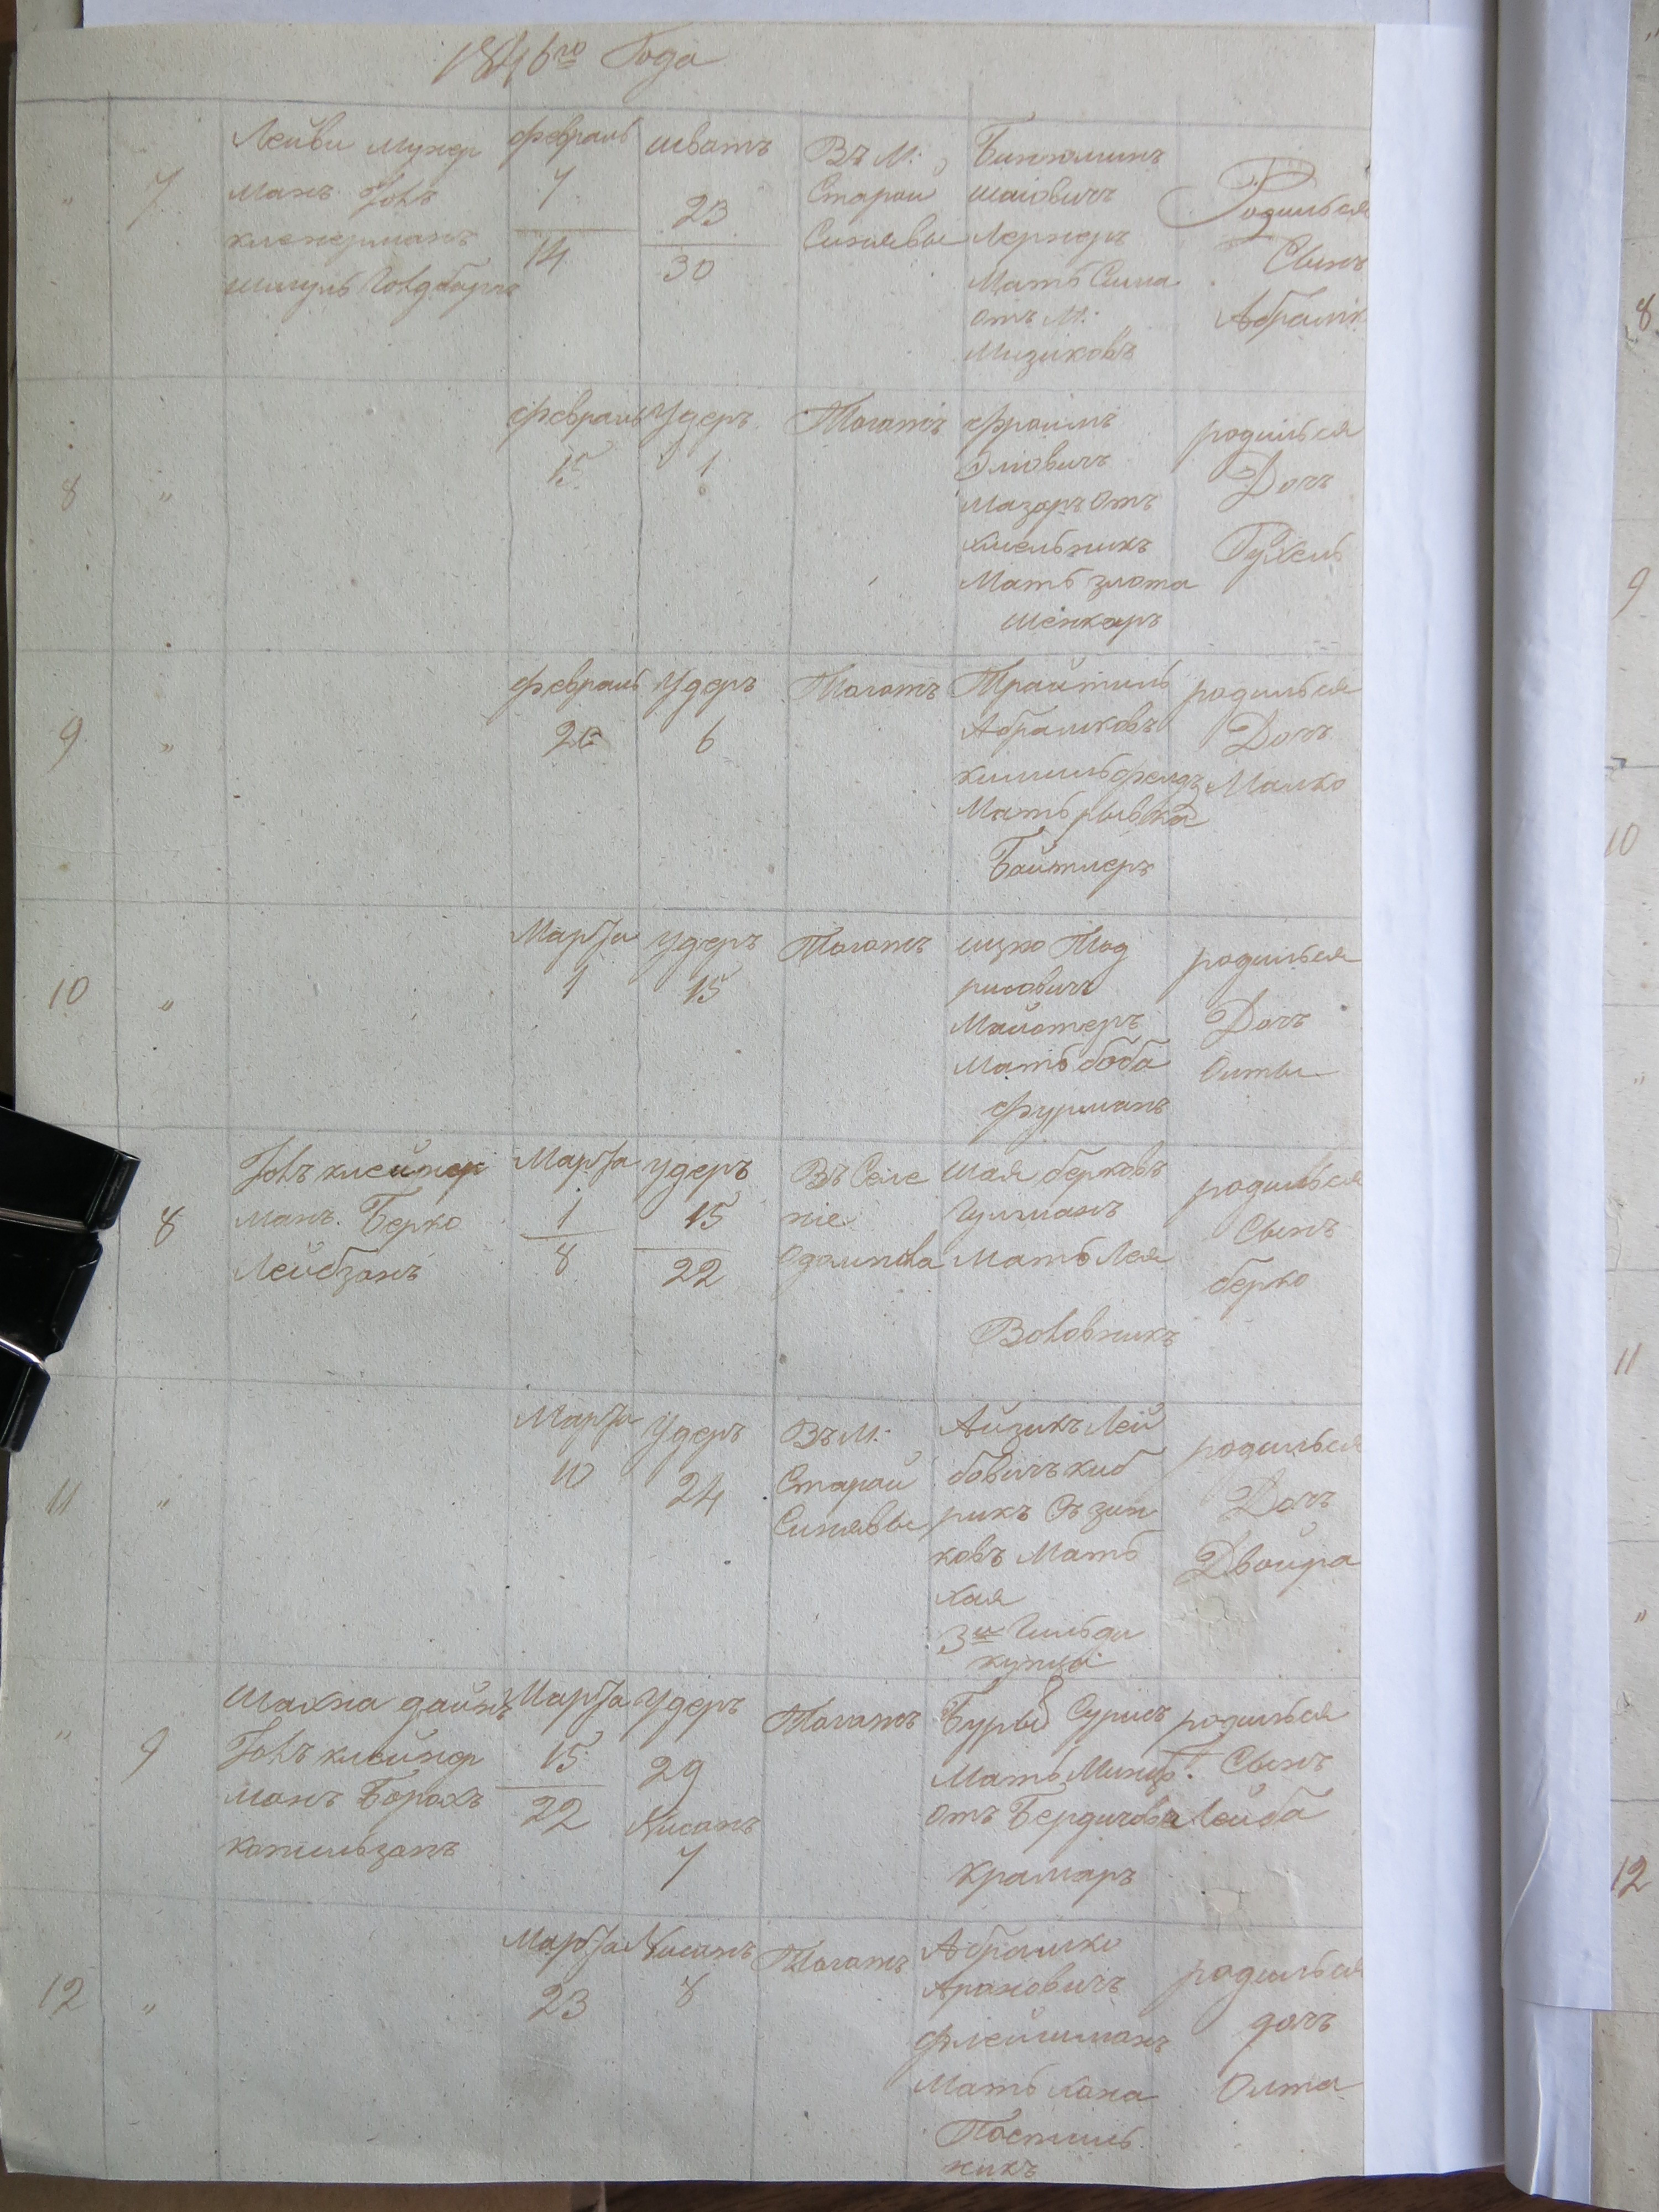 1846го Года
" 7
Лейви мунер
манъ Іовъ
кленерманъ
шмуль Гольдбарг
февраль
7
14
шватъ
23
30
Въ М:
Старой
Синявы
Бинюминъ
шаіовичъ
Лернеръ
Мать Сима
отъ М:
Мизиковъ
Родилься
Сынъ
Абрамк
8 "
февраль
15
Удеръ
1
Тогатъ
Фроимъ
мазаръ отъ
хмельникъ
Мать злота
шенкаръ
родилься
Дочъ
Рухель
9 "
февраль
20
Удеръ
6
Тогатъ
Трайтиль
Абрамковъ
кимильфелдъ
Мать рывка
Байтлеръ
родилься
Дочъ
Малко
10 "
Марта
1
Удеръ
15
Тогатъ
ицко Мод
риовичъ
Майстеръ
Мать боба
фурманъ
родилься
Дочъ
Олты
8
Іовъ клейнер
манъ. Берко
Лейбзонъ
Марта
1
8
Удеръ
15
22
Въ Селе
ніе
Шая берковъ
Гулманъ
Мать Лея
Воловникъ
родилься
Сынъ
берко
11 "
Марта
10
Удеръ
24
Въ М:
Старой
Синявы
Айзикъ Лей
бовичъ киб
рикъ Съ зин
ковъ Мать
хая
3й Гильди
купца
родилься
Дочъ
Двойра
" 9
Шахна дайнъ
Іовъ клейнер
манъ Борохъ
котильзонъ
Марта
15
22
Удеръ
29
Нисанъ
7
Тогатъ
Сурисъ
Мать
отъ Бердичова
крамаръ
родилься
Сынъ
Лейба
12 "
Марта
23
Нисанъ
8
Тогатъ
Абрамко
Ароновичъ
флейшманъ
Мать хана
Постиль
никъ
родилься
дочъ
Олта
8
9
10
"
11
"
12